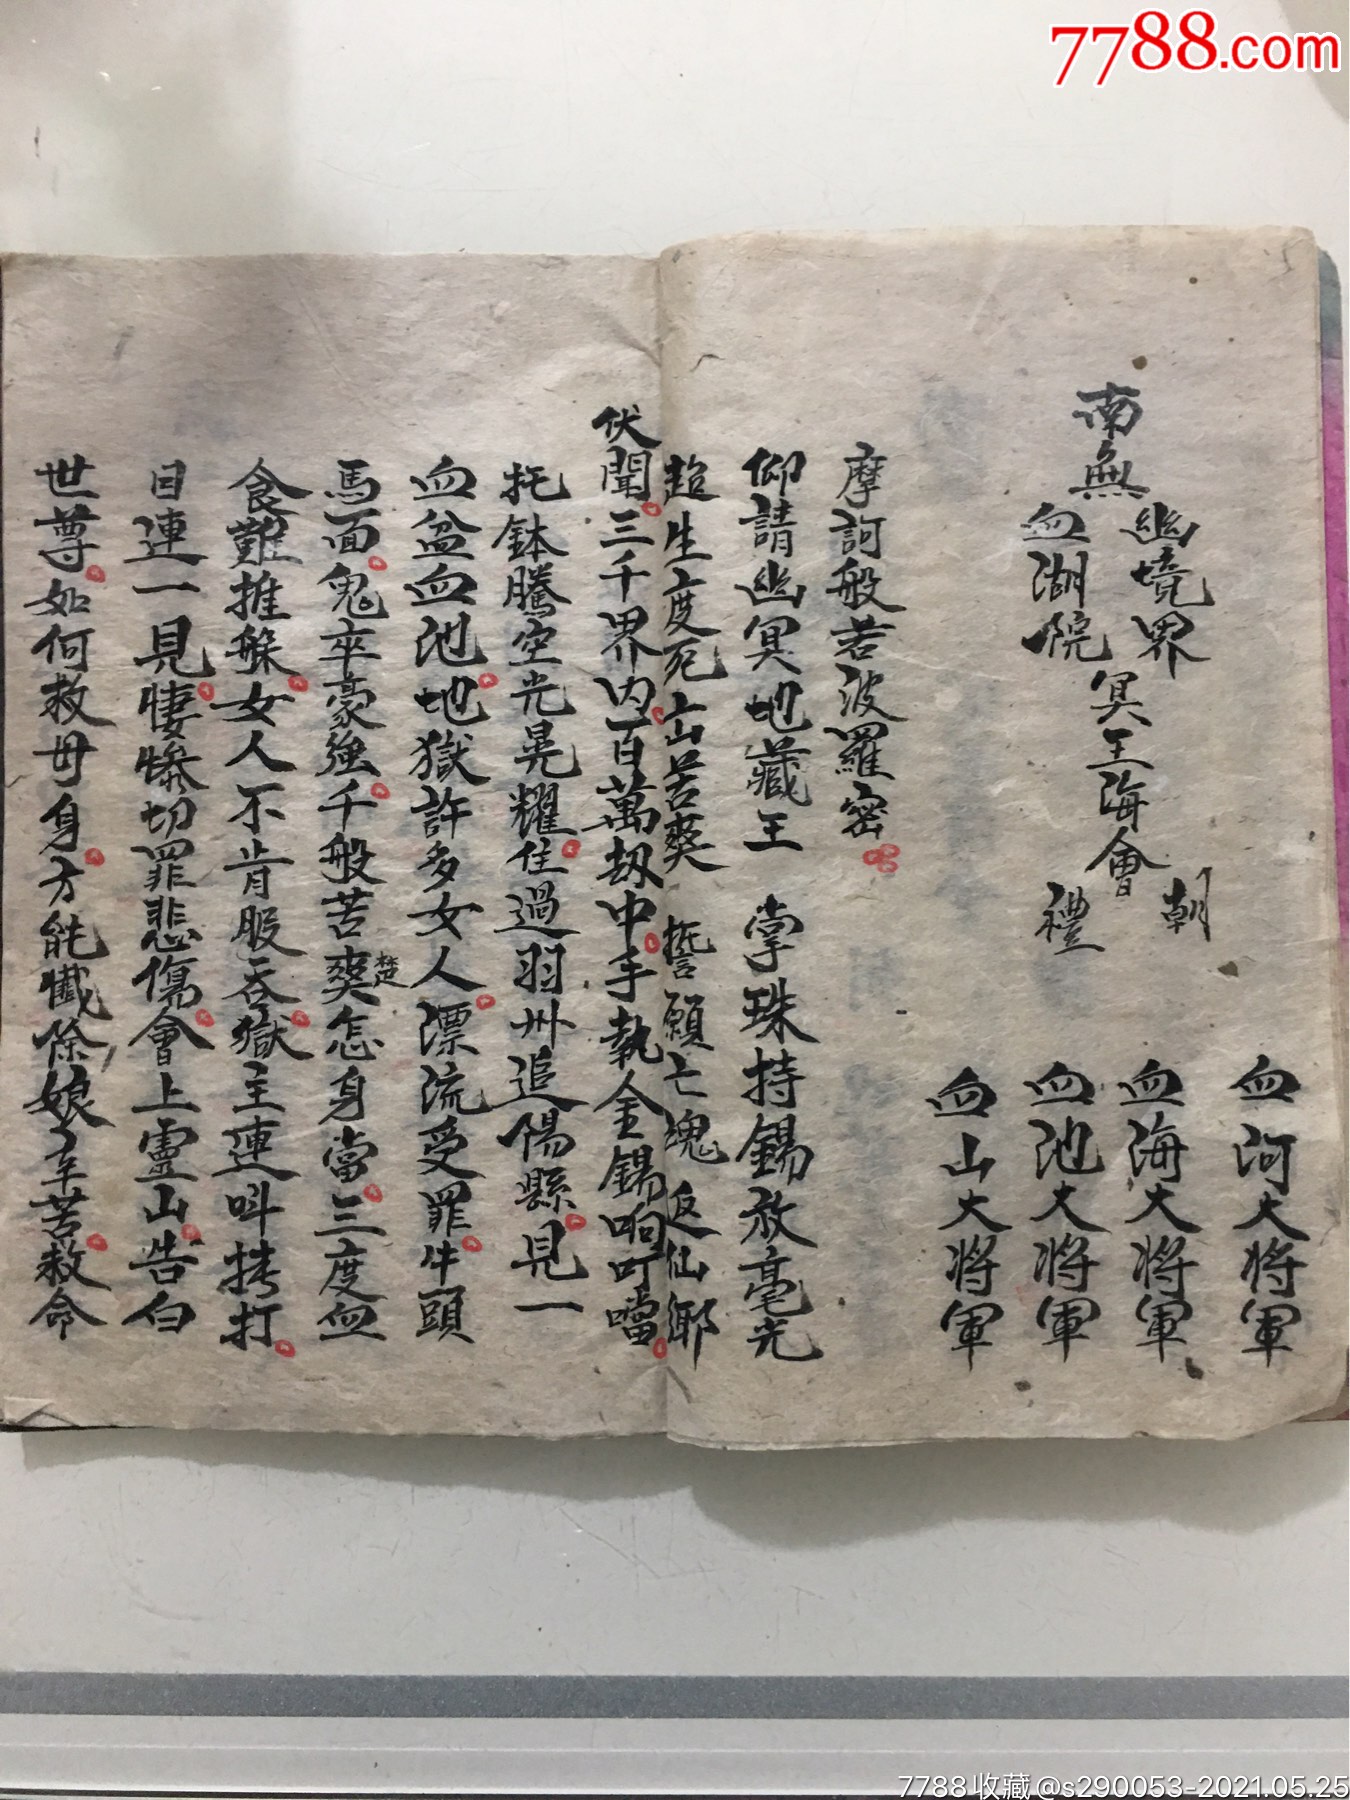 7788.com
南無
幽境界
血湖院
冥王海會
朝
禮
血河大将軍
血海大将軍
血池大将軍
血山大将軍
摩訶般若波羅密
仰請幽冥地藏王 掌珠持錫放毫光
超生度死亡苦爽 誓願亡魂返仙鄉
伏聞三千界內百萬劫中手執金錫响叮噹
托鉢騰空光晃耀住過羽州追陽縣見一
血盆血池地獄許多女人漂流受罪牛頭
馬面鬼卒豪強千般苦爽楚怎身當三度血
食難推躲女人不肯服吞獄主連呌拷打
目連一見悽慘切罪悲傷會上靈山告白
世尊如何救母身方能懺除娘辛苦救命
7788收藏@s290053-2021.05.25